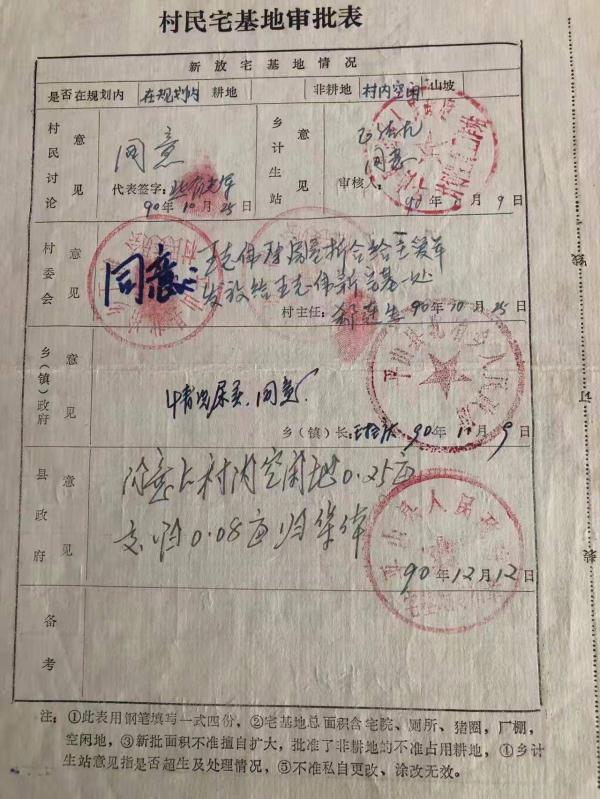 村民宅基地审批表
新放宅基地情况
是否在规划内 在规划内 耕地 非耕地 村内空闲 山坡
村民讨论意见
同意
代表签字：
90年10月25日
乡计生站意见
同意
审核人：
90年 月9日
村委会意见
同意
王克伟
发放给王克伟新宅基一处
村主任： 90年10月25日
乡（镇）政府意见
情况属实，同意
乡（镇）长： 90年11月9日
县政府意见
同意占村内空闲地0.25亩
0.08亩
90年12月12日
备考
注：①此表用钢笔填写一式四份，②宅基地总面积含宅院、厕所、猪圈，厂棚，
空闲地，③新批面积不准擅自扩大，批准了非耕地的不准占用耕地，④乡计
生站意见指是否超生及处理情况，⑤不准私自更改、涂改无效。